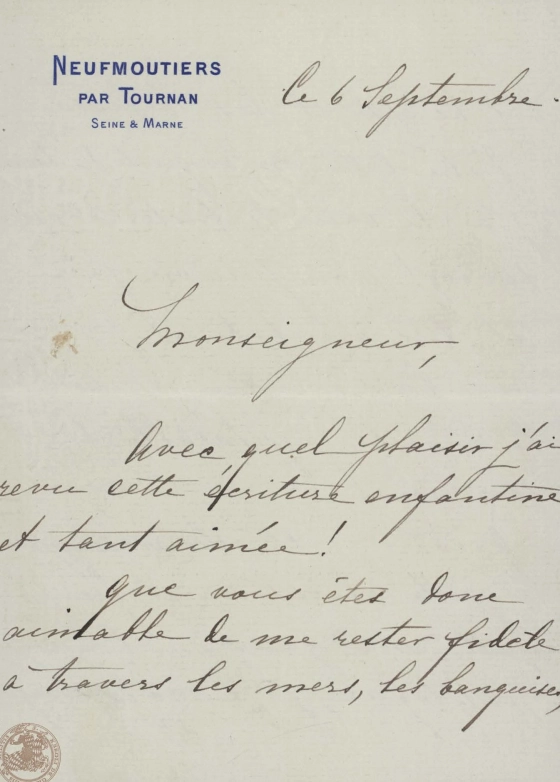 NEUFMOUTIERS
PAR TOURNAN
SEINE & MARNE
Ce 6 Septembre.
Monseigneur,
Avec quel plaisir j'ai
revu cette écriture enfantine
et tant aimée!
que vous êtes donc
aimable de me rester fidèle
à travers les mers, les banquises,